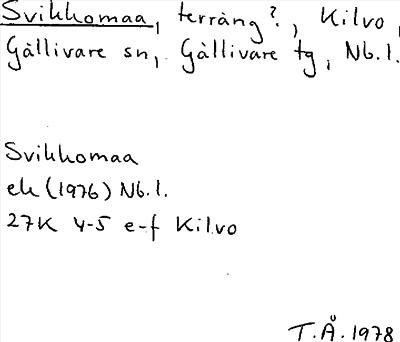 Svikkomaa, terräng?, Kilvo,
Gällivare sn, Gällivare tg, Nb.l.
Svikkomaa
ek (1976) Nb.l.
27K 4-5 e-f Kilvo
T.Å. 1978